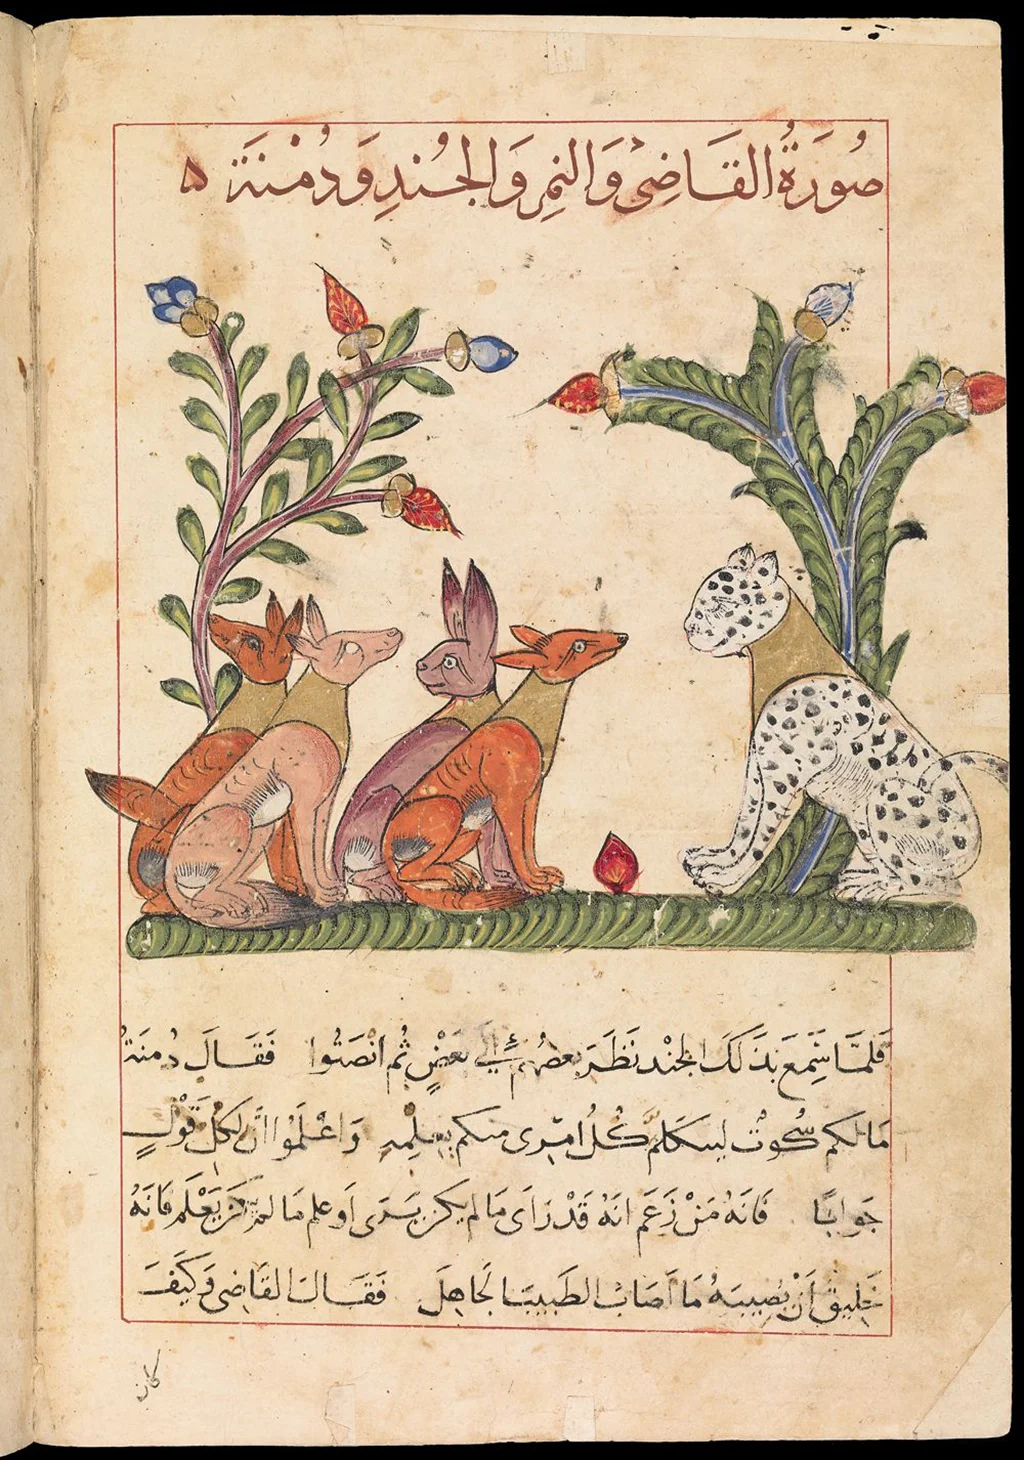 صُورَةُ القَاضِى وَالنمِرِ وَالجُندِ وَدُمْنَةَ ٥
فَلمَّا سَمِعَ بذَلكَ الجُنْد نَظَرَ بعضُهم إلَى بَعْضٍ ثُم انْصَتُوا فَقَالَ دُمنَةُ
مَا لكم سُكُوتْ ليتكَلمَّ كُلُ امْرِى منكم بِعِلمِهِ وَاعْلَمُوا انَّ لِكُلِّ قَوْلٍ
جَوابًا فَانَهُ مَنْ زَعَمَ انَهُ قَدْ رَاى مَا لم يكن يَرَى اَو علم مَا لم يَكنْ يَعْلَم فَانَهُ
خَلِيق اَنْ يُصِيبَهُ مَا اَصَابَ الطَبيبَ الجَاهِلَ فَقَالَ القَاضِى وَكَيفَ
كان